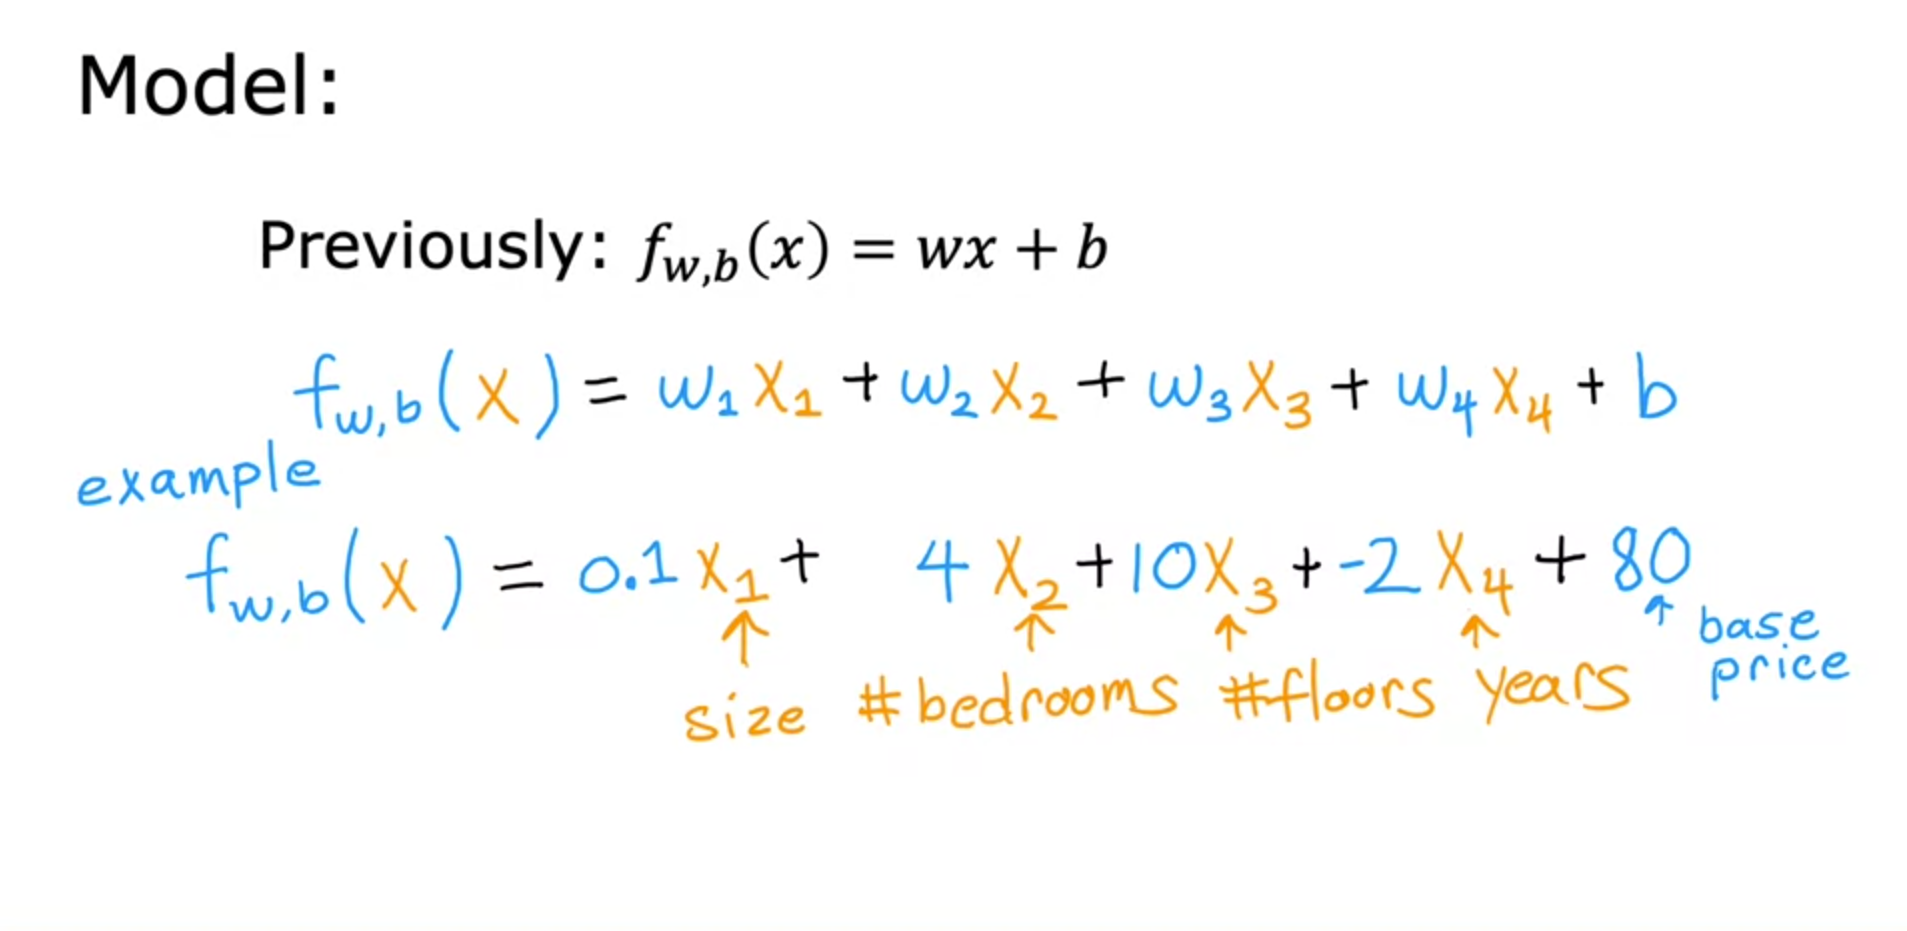 Model:
Previously: f_{w,b}(x) = wx + b
f_{w,b}(x) = w₁x₁ + w₂x₂ + w₃x₃ + w₄x₄ + b
example
f_{w,b}(x) = 0.1x₁ + 4x₂ + 10x₃ + -2x₄ + 80
↑ ↑ ↑ ↑ ↑ base
price
size #bedrooms #floors years